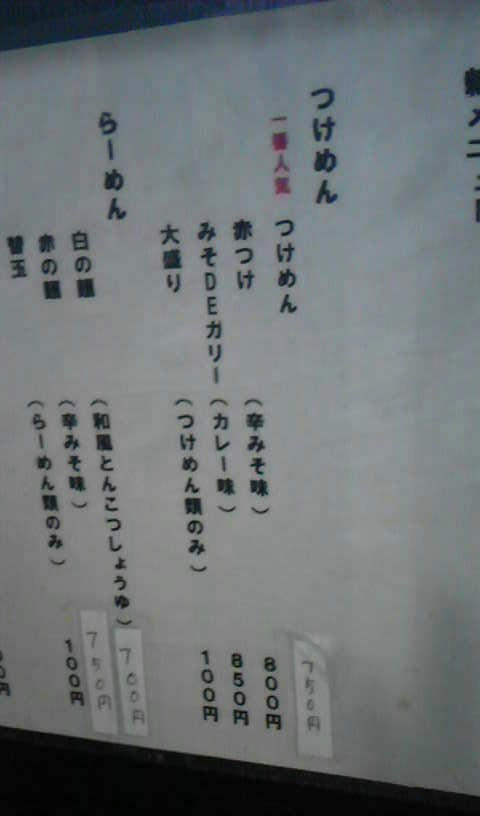 つけめん
一番人気 つけめん 750円
赤つけ (辛みそ味) 800円
みそDEカリー (カレー味) 850円
大盛り (つけめん類のみ) 100円
らーめん
白の麺 (和風とんこつしょうゆ) 700円
赤の麺 (辛みそ味) 750円
替玉 (らーめん類のみ) 100円